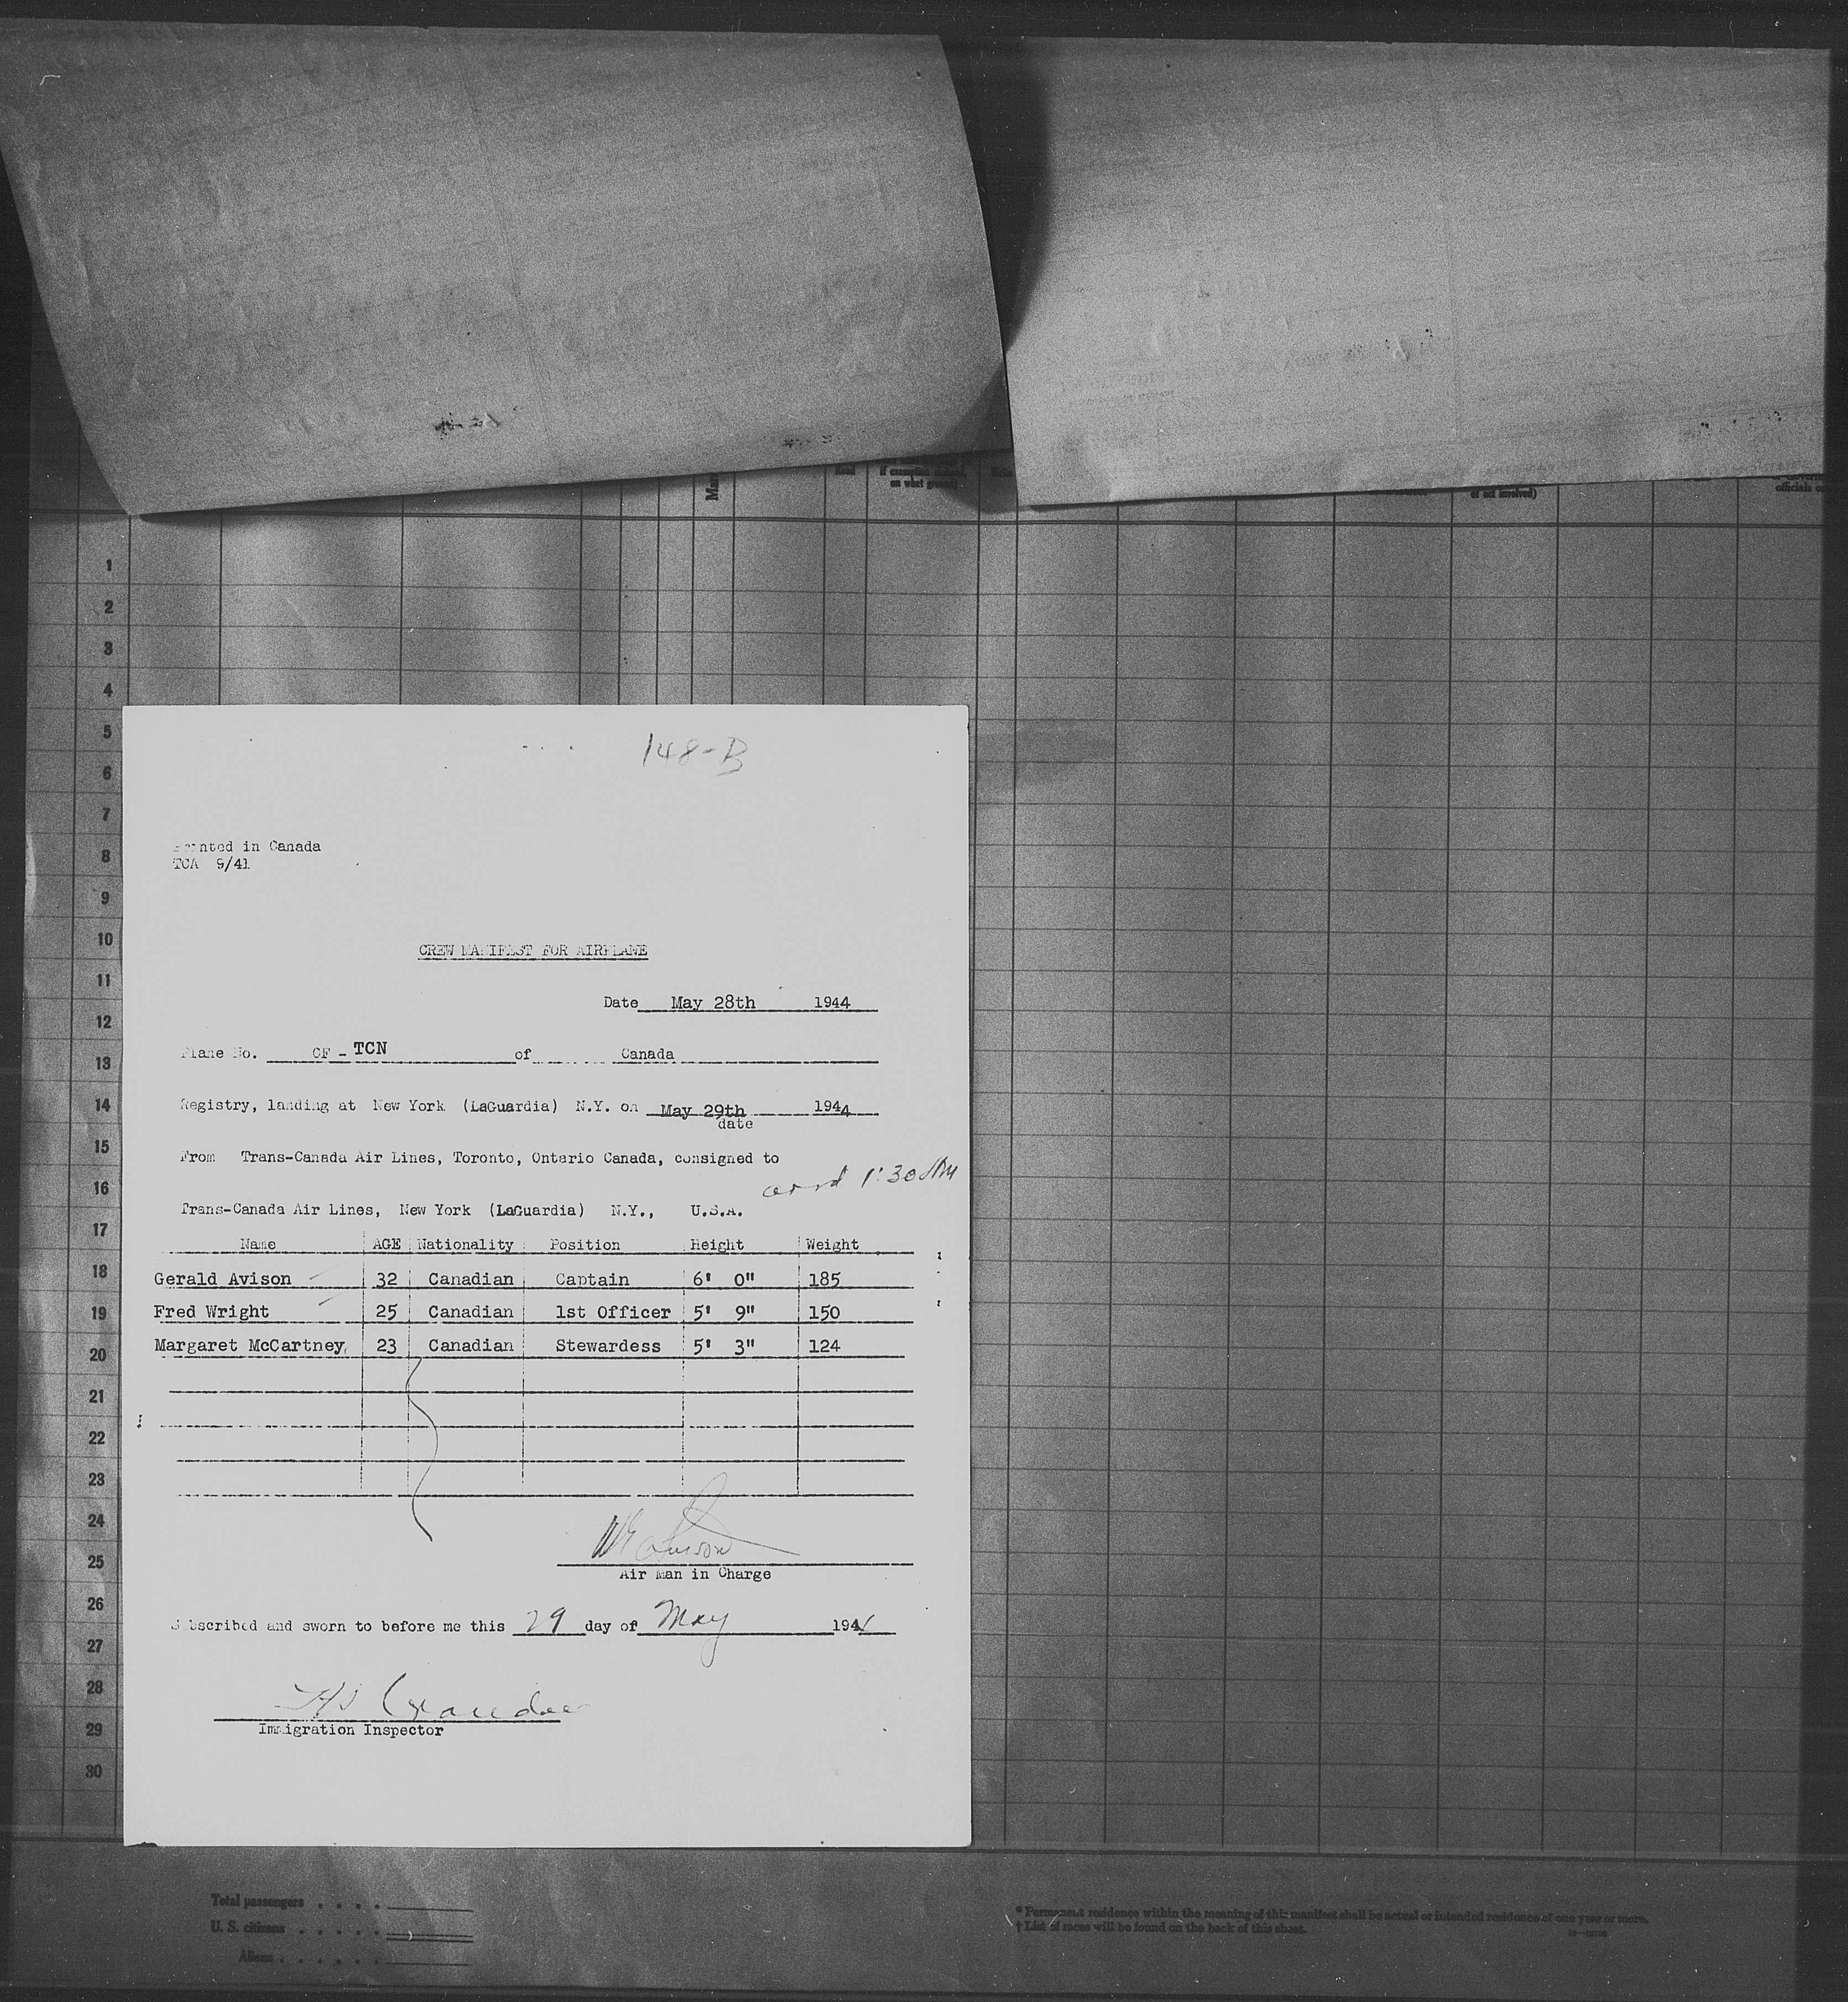 if exemption claimed,
on what ground)
of act involved)
officials
1
2
3
4
5
6
7
8
9
10
11
12
13
14
15
16
17
18
19
20
21
22
23
24
25
26
27
28
29
30
148-B
Printed in Canada
TCA 9/41
CREW MANIFEST FOR AIRPLANE
Date May 28th 1944
Plane No. CF - TCN of Canada
Registry, landing at New York (LaGuardia) N.Y. on May 29th 1944
date
From Trans-Canada Air Lines, Toronto, Ontario Canada, consigned to
arrd 1:30 AM
Trans-Canada Air Lines, New York (LaGuardia) N.Y., U.S.A.
Name AGE Nationality Position Height Weight
Gerald Avison 32 Canadian Captain 6' 0" 185
Fred Wright 25 Canadian 1st Officer 5' 9" 150
Margaret McCartney 23 Canadian Stewardess 5' 3" 124
Air Man in Charge
Subscribed and sworn to before me this 29 day of May 194
Immigration Inspector
Total passengers . . . .
U. S. citizens . . . . .
Aliens . . . . . .
* Permanent residence within the meaning of this manifest shall be actual or intended residence of one year or more.
† List of races will be found on the back of this sheet.